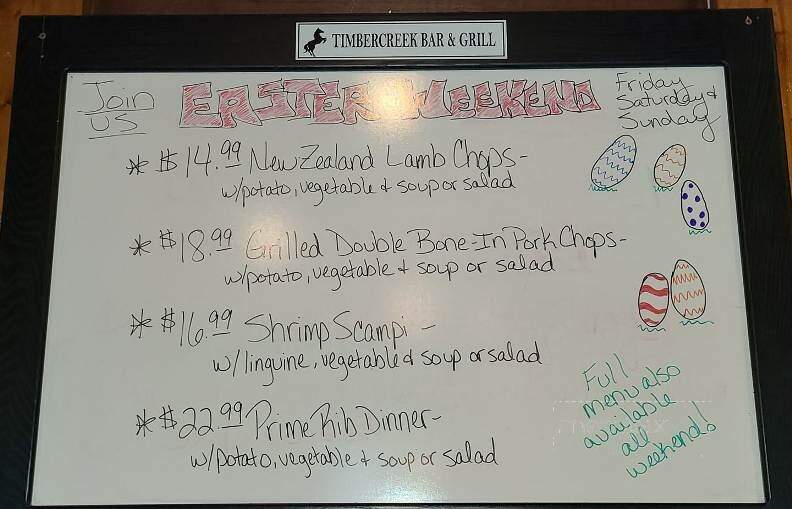 TIMBERCREEK BAR & GRILL
Join
us
EASTER WEEKEND
Friday
Saturday &
Sunday
* $14.99 New Zealand Lamb Chops-
w/potato, vegetable & soup or salad
* $18.99 Grilled Double Bone-In Pork Chops-
w/potato, vegetable & soup or salad
* $16.99 Shrimp Scampi -
w/linguine, vegetable & soup or salad
* $22.99 Prime Rib Dinner-
w/potato, vegetable & soup or salad
Full
menu also
available
all
weekend!